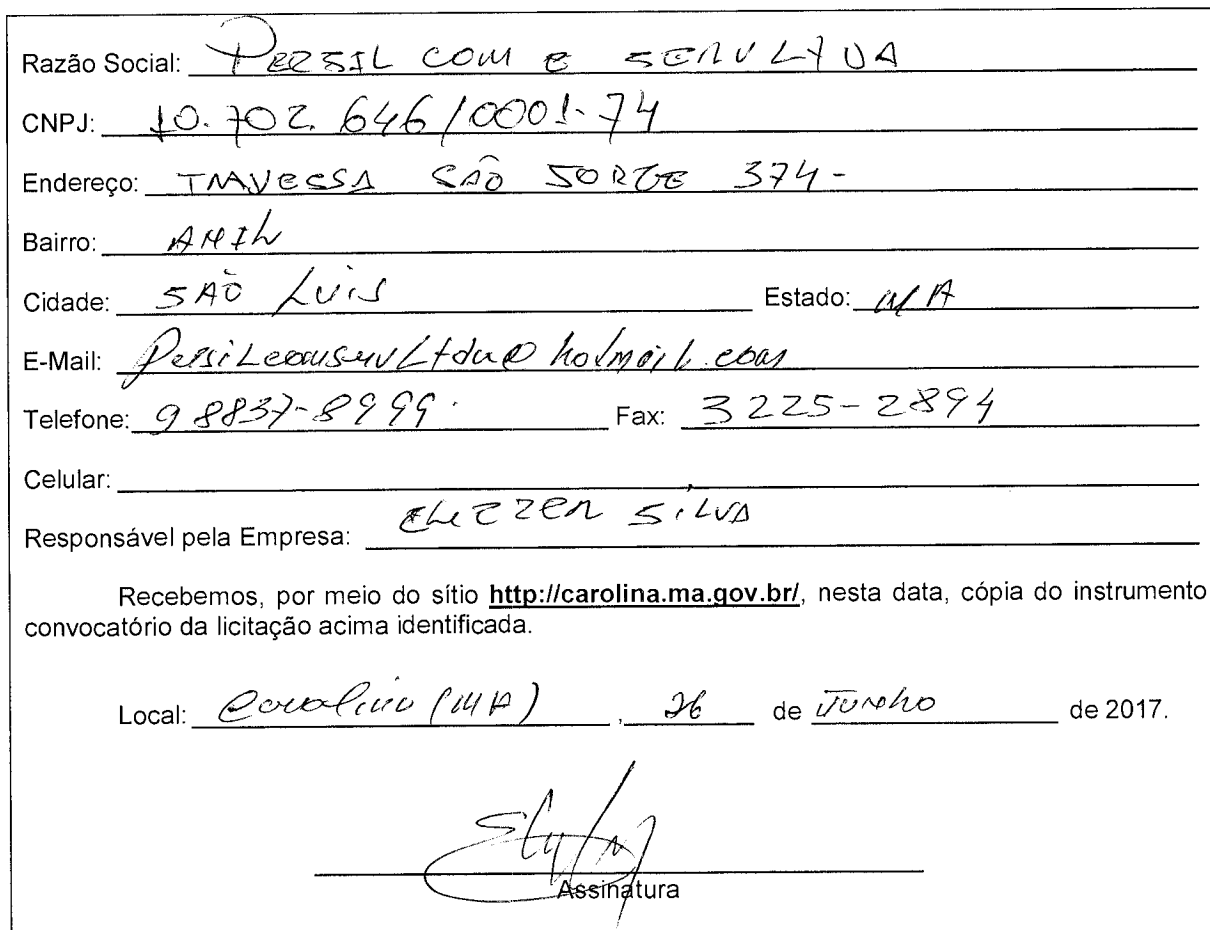 Razão Social: PERSIL COM E SERV LTDA
CNPJ: 10.702.646/0001-74
Endereço: TRAVESSA SÃO JORGE 374-
Bairro: ANIL
Cidade: SÃO LUIS Estado: MA
E-Mail: @hotmail.com
Telefone: 98837-8999. Fax: 3225-2894
Celular:
Responsável pela Empresa: SILVA
Recebemos, por meio do sítio http://carolina.ma.gov.br/, nesta data, cópia do instrumento
convocatório da licitação acima identificada.
Local: Carolina (MA), 26 de Junho de 2017.
Assinatura